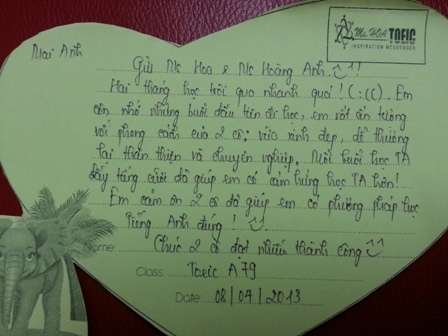 Mai Anh
Ms. HOA TOEIC
INSPIRATION MESSENGER
Gửi Ms Hoa & Ms Hoàng Anh ^^!!
Hai tháng học trôi qua nhanh quá! (:(( . Em
còn nhớ những buổi đầu tiên đi học, em rất ấn tượng
với phong cách của 2 cô; vừa xinh đẹp, dễ thương
lại thân thiện và chuyên nghiệp. Mỗi buổi học TA
đầy tiếng cười đã giúp em có cảm hứng học TA hơn!
Em cảm ơn 2 cô đã giúp em có phương pháp học
Tiếng Anh đúng! ^^.
Name: Chúc 2 cô đạt nhiều thành công ^^
Class: Toeic A79
Date: 08/04/2013